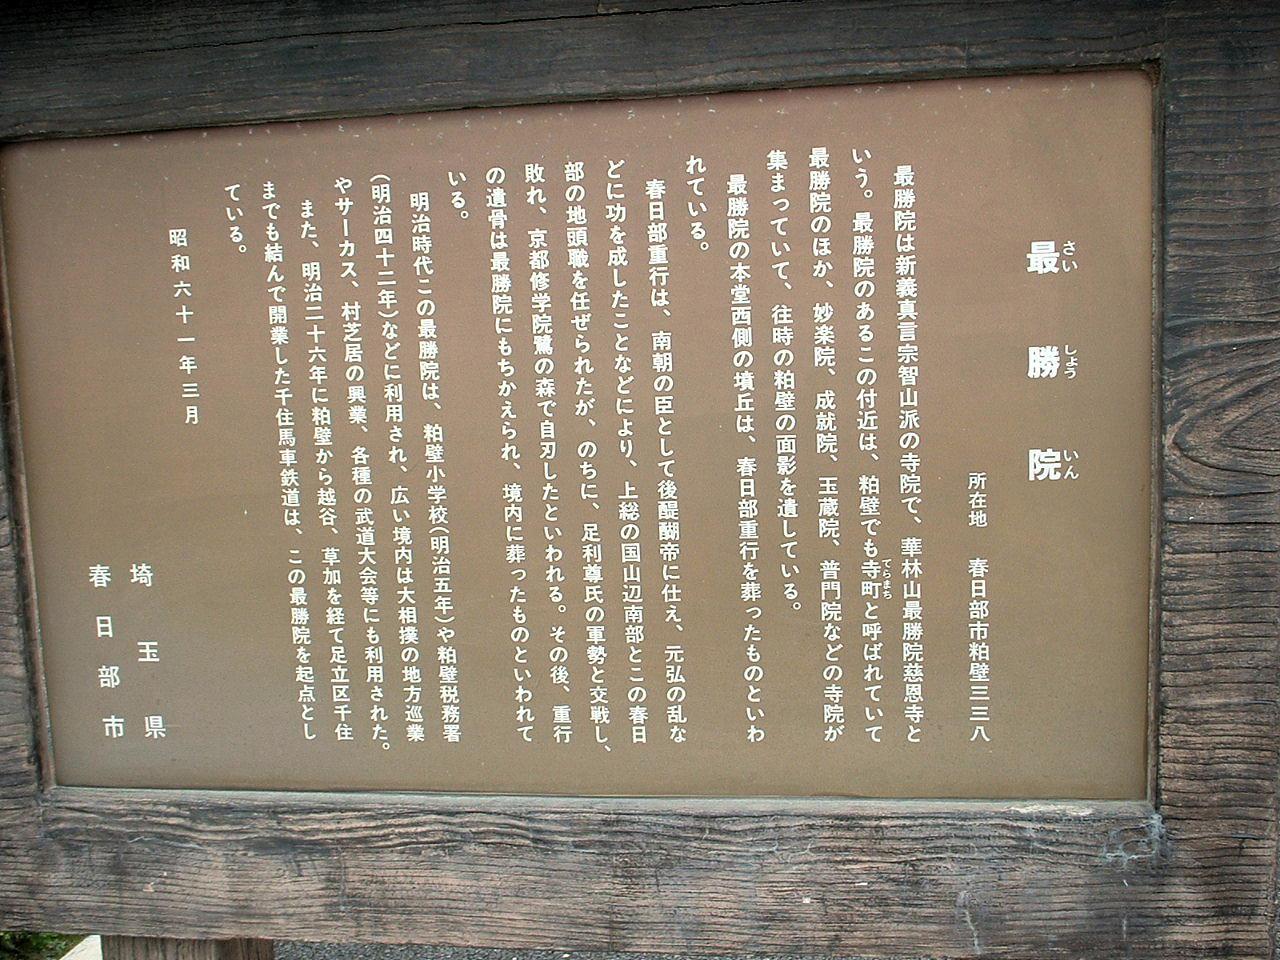 最勝院
さいしょういん
所在地 春日部市粕壁三三八
最勝院は新義真言宗智山派の寺院で、華林山最勝院慈恩寺と
いう。最勝院のあるこの付近は、粕壁でも寺町と呼ばれていて
てらまち
最勝院のほか、妙楽院、成就院、玉蔵院、普門院などの寺院が
集まっていて、往時の粕壁の面影を遺している。
最勝院の本堂西側の墳丘は、春日部重行を葬ったものといわ
れている。
春日部重行は、南朝の臣として後醍醐帝に仕え、元弘の乱な
どに功を成したことなどにより、上総の国山辺南部とこの春日
部の地頭職を任ぜられたが、のちに、足利尊氏の軍勢と交戦し、
敗れ、京都修学院鷺の森で自刃したといわれる。その後、重行
の遺骨は最勝院にもちかえられ、境内に葬ったものといわれて
いる。
明治時代この最勝院は、粕壁小学校(明治五年)や粕壁税務署
(明治四十二年)などに利用され、広い境内は大相撲の地方巡業
やサーカス、村芝居の興業、各種の武道大会等にも利用された。
また、明治二十六年に粕壁から越谷、草加を経て足立区千住
までも結んで開業した千住馬車鉄道は、この最勝院を起点とし
ている。
昭和六十一年三月
埼玉県
春日部市